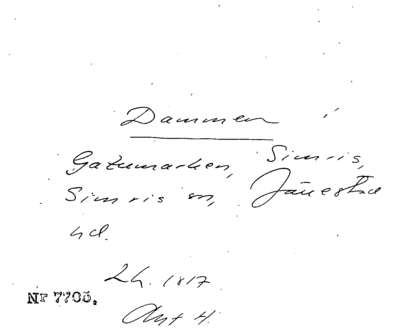 Dammen
Gatumarken, Simris,
Simris sn, Järrestad
hd.
Lh. 1817
Nr 7705.
Avt H.